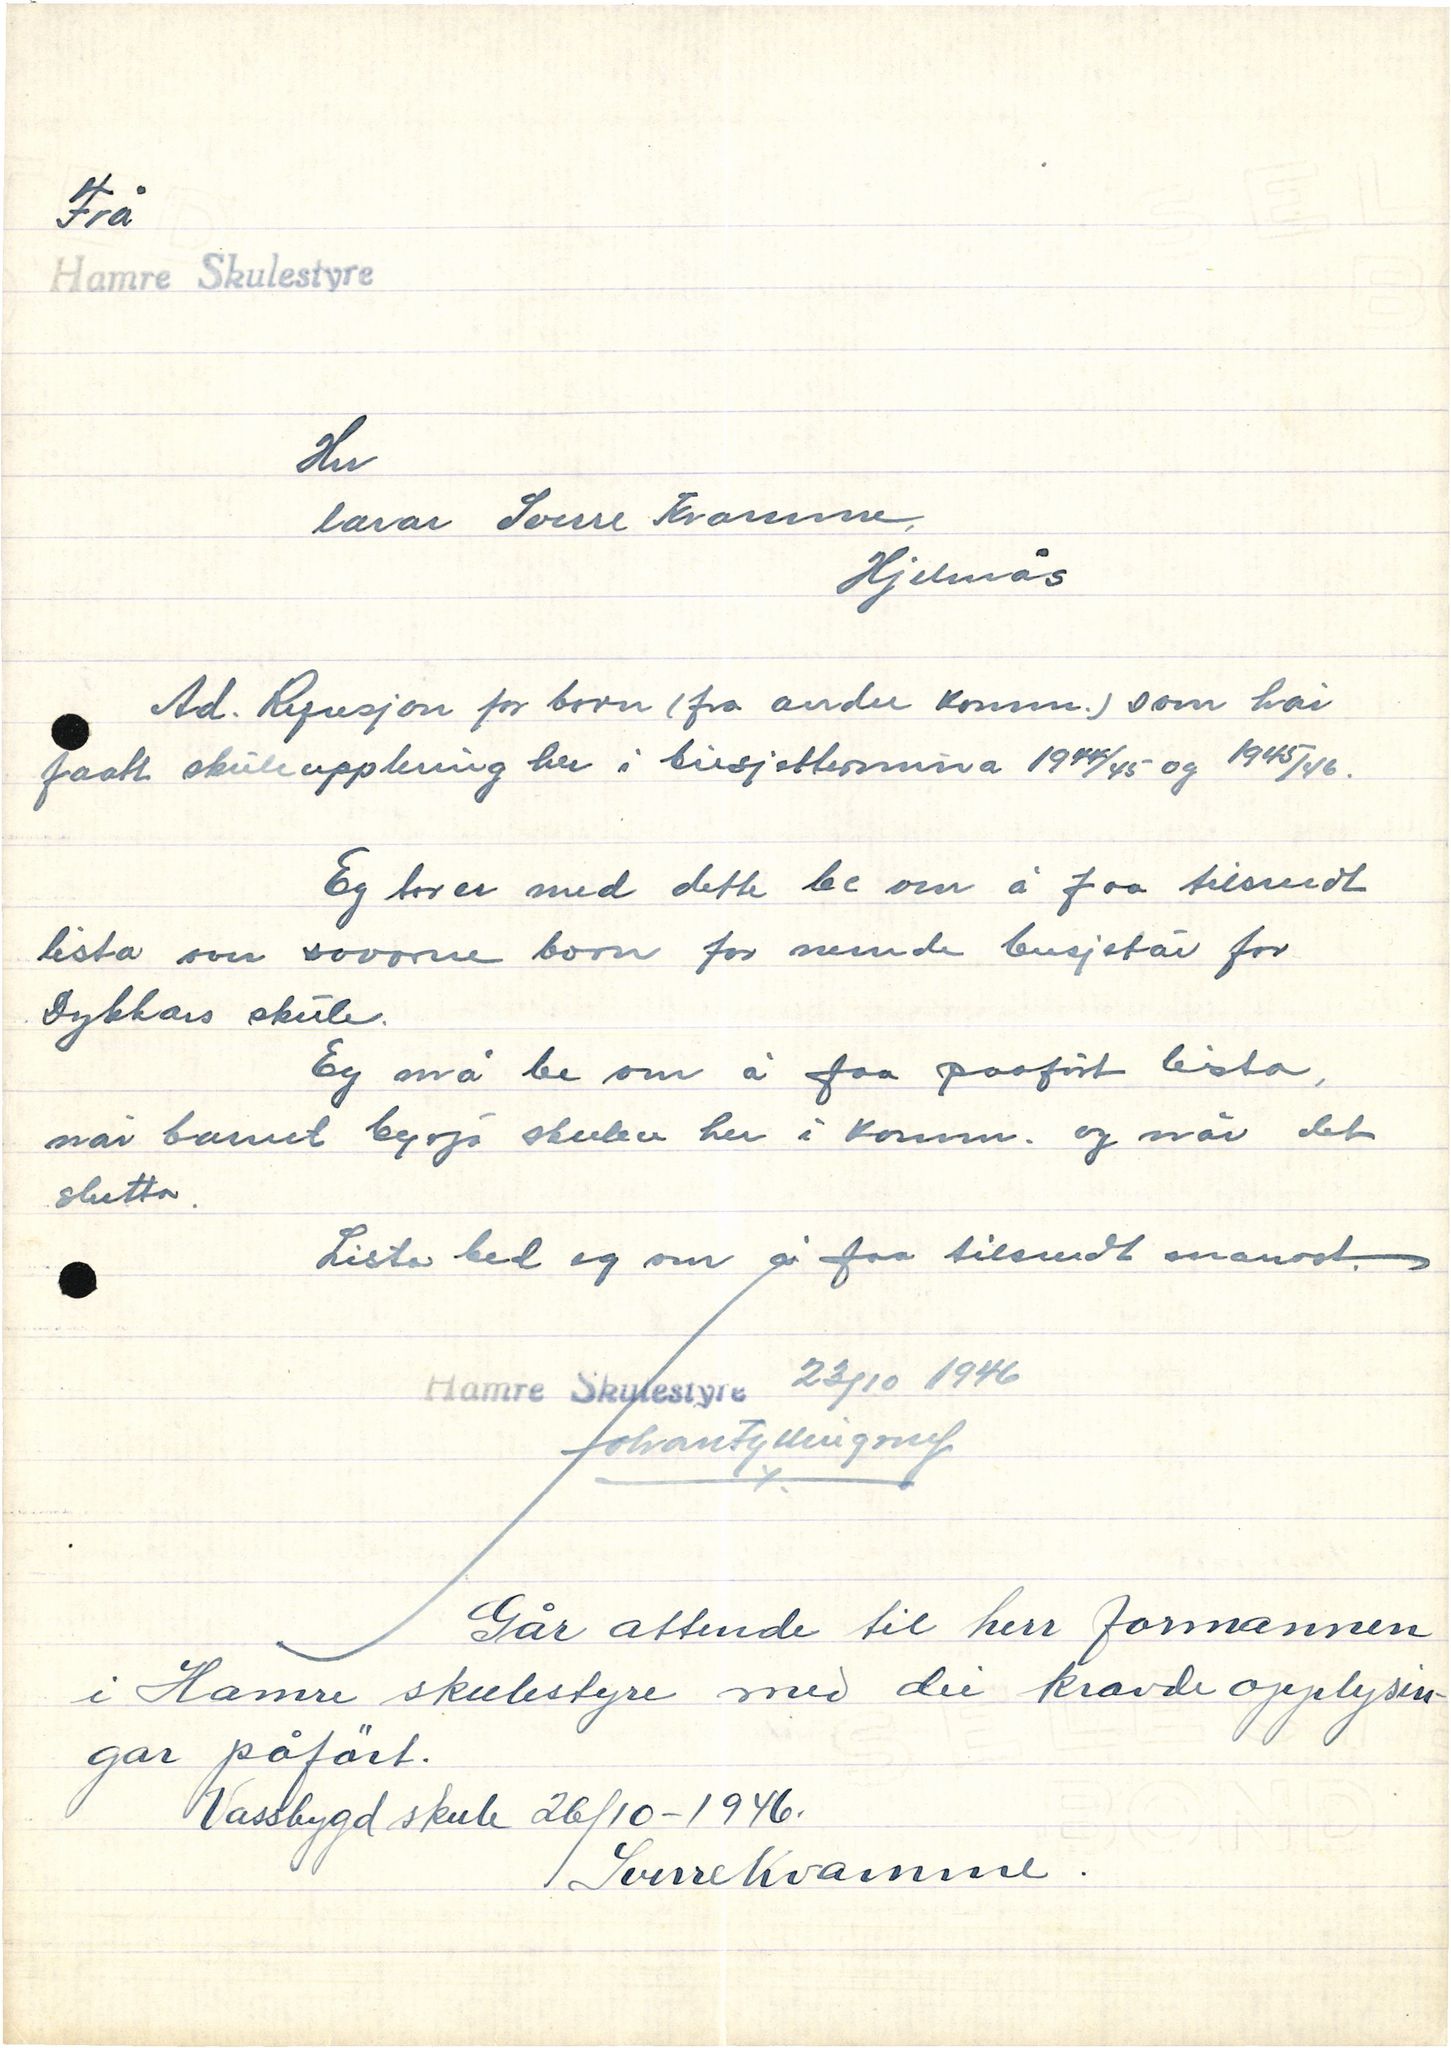 Frå
Hamre Skulestyre
Herr
lærar Sverre Kvamme,
Hjelmås
Ad. Refusjon for born (fra andre komm.) som har
faatt skuleupplering her i busjettermina 1944/45 og 1945/46.
Eg torer med dette be om å faa tilsendt
lista over sovorne born for nemde busjetår for
Dykkars skule.
Eg må be om å faa paafört lista,
når barnet byrja skulen her i komm. og når det
slutta.
Lista bed eg om å faa tilsendt snarast.
Hamre Skulestyre 23/10 1946
Johan Fyllingsnes
f.
Går attende til herr formannen
i Hamre skulestyre med dei kravde opplysin-
gar påfört.
Vassbygd skule 26/10-1946.
Sverre Kvamme.